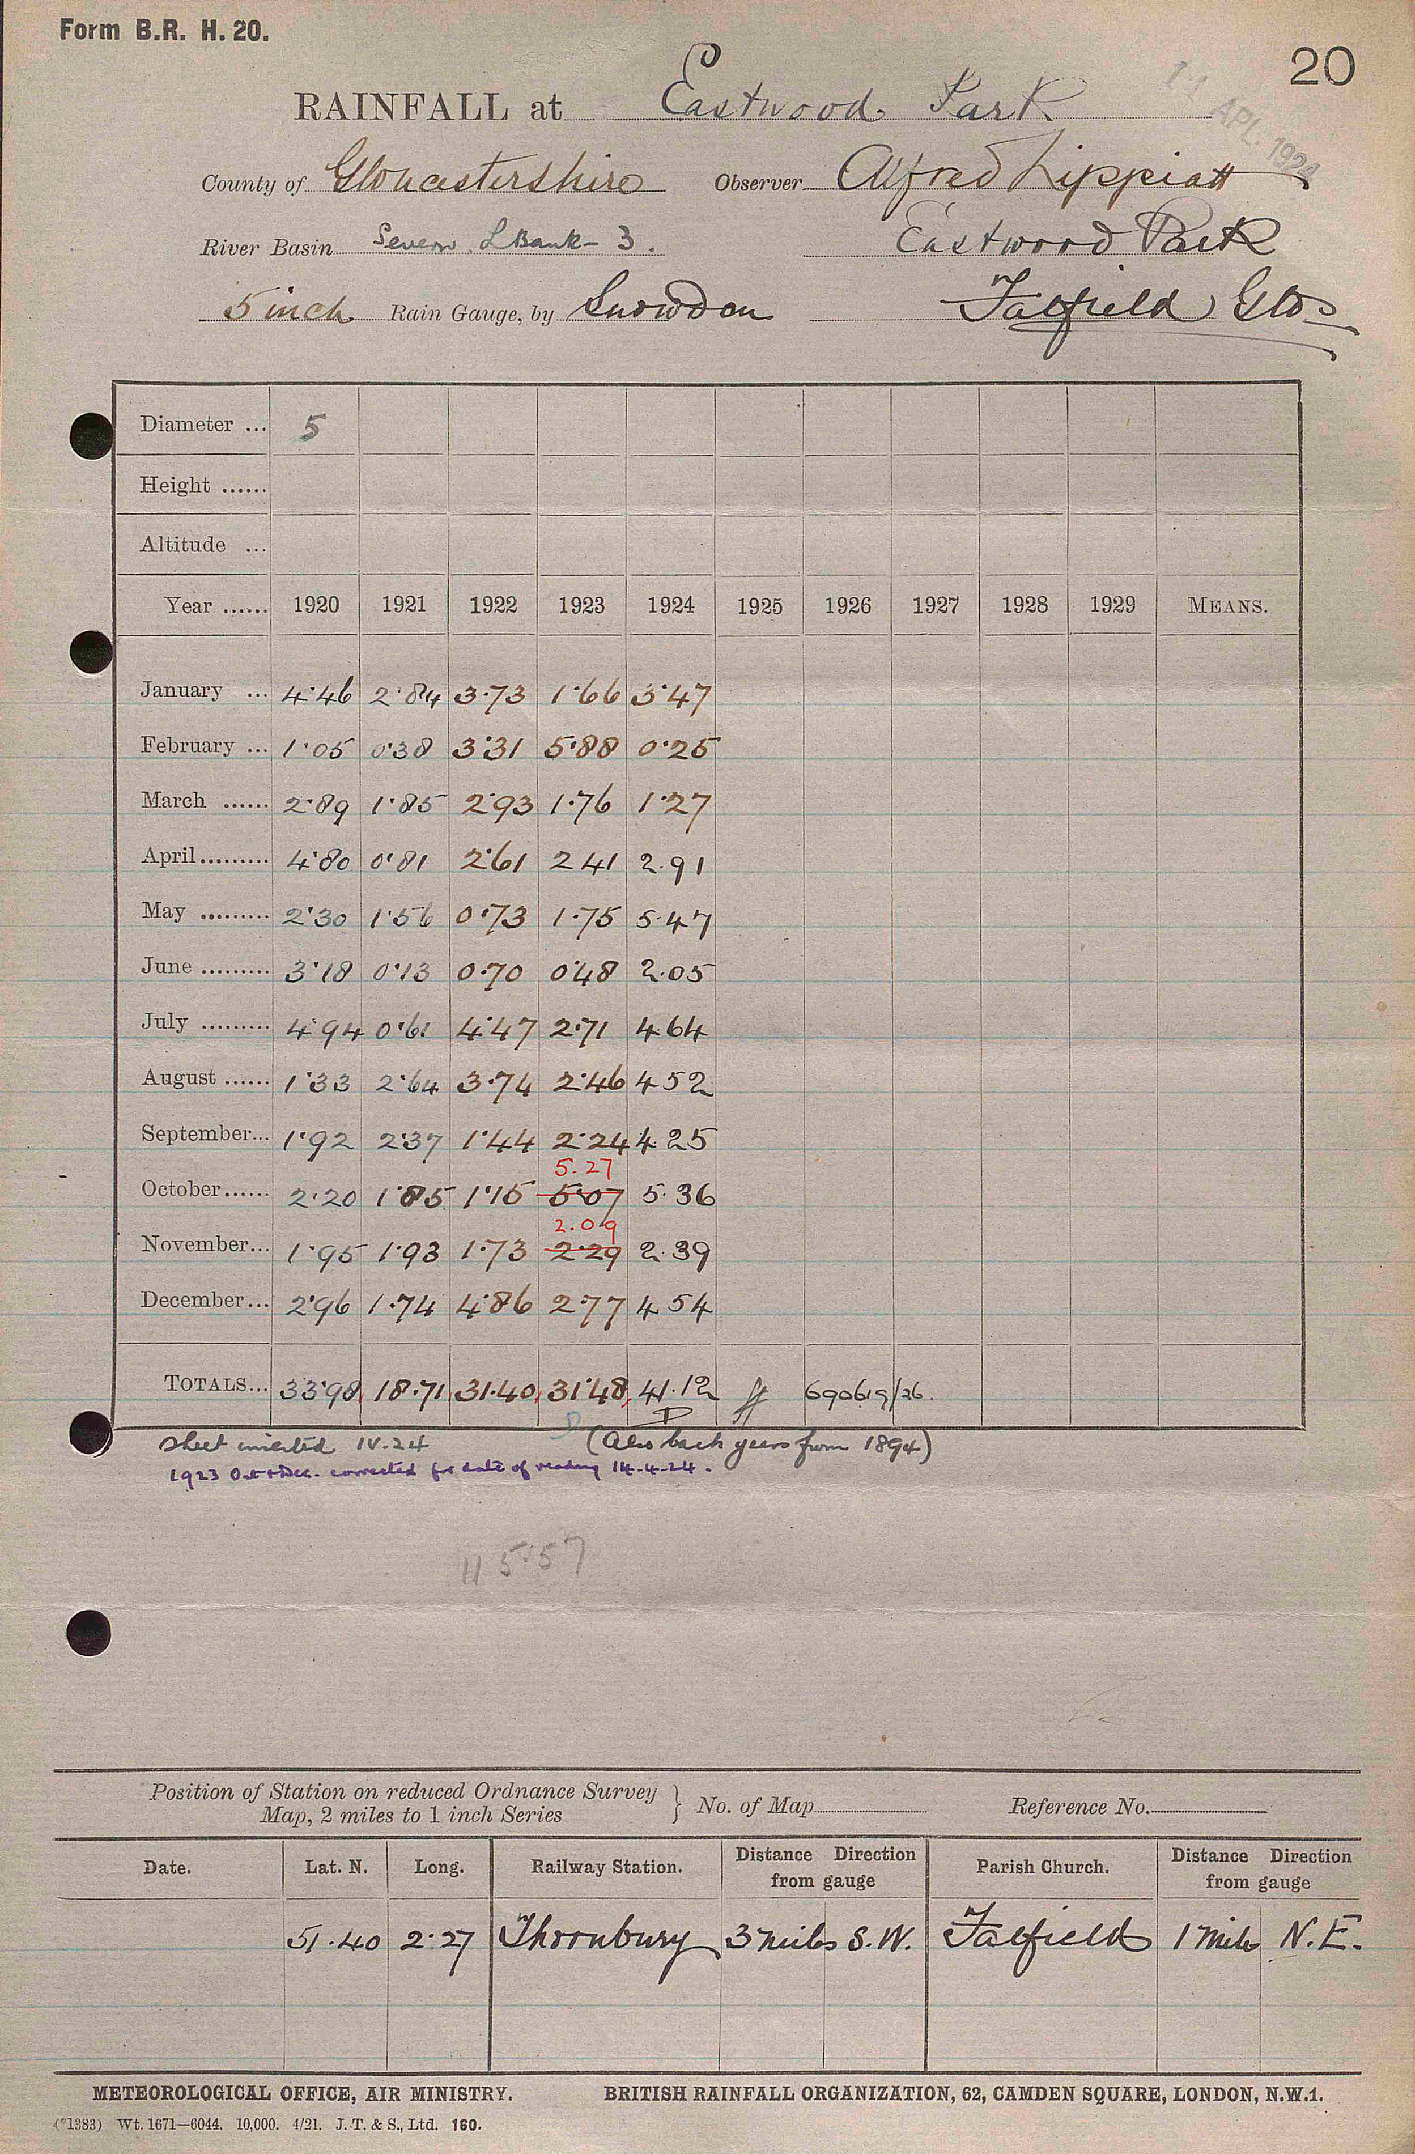 Form B.R. H. 20.
20
11 APL. 1924
RAINFALL at Eastwood Park
County of Gloucestershire Observer Alfred Lippiatt
River Basin Severn L Bank - 3. Eastwood Park
5 inch Rain Gauge, by Snowdon Falfield Glos
Diameter ... 5
Height ......
Altitude ...
Year ...... 1920 1921 1922 1923 1924 1925 1926 1927 1928 1929 MEANS.
January ... 4.46 2.84 3.73 1.66 3.47
February ... 1.05 0.38 3.31 5.88 0.25
March ...... 2.89 1.85 2.93 1.76 1.27
April ......... 4.80 0.81 2.61 2.41 2.91
May ......... 2.30 1.56 0.73 1.75 5.47
June ......... 3.18 0.13 0.70 0.48 2.05
July ......... 4.94 0.61 4.47 2.71 4.64
August ...... 1.33 2.64 3.74 2.46 4.52
September... 1.92 2.37 1.44 2.24 4.25
5.27
October ...... 2.20 1.85 1.15 5.07 5.36
2.09
November... 1.95 1.93 1.73 2.29 2.39
December... 2.96 1.74 4.86 2.77 4.54
TOTALS... 33.98 18.71 31.40 31.48 41.12 690619/26.
Sheet inserted IV.24 (Also back years from 1894)
1923 Oct & Dec. corrected for date of reading 14-4-24.
115.57
Position of Station on reduced Ordnance Survey
Map, 2 miles to 1 inch Series } No. of Map Reference No.
Date. Lat. N. Long. Railway Station. Distance Direction from gauge Parish Church. Distance Direction from gauge
51.40 2.27 Thornbury 3 miles S.W. Falfield 1 Mile N.E.
METEOROLOGICAL OFFICE, AIR MINISTRY. BRITISH RAINFALL ORGANIZATION, 62, CAMDEN SQUARE, LONDON, N.W.1.
(*1383) Wt. 1671—6044. 10,000. 4/21. J. T. & S., Ltd. 160.